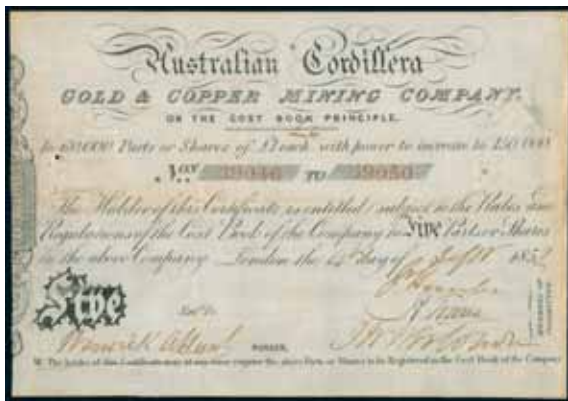 Australian Cordillera
GOLD & COPPER MINING COMPANY.
ON THE COST BOOK PRINCIPLE.
In Parts or Shares of £1 each with power to increase to
Nos. 39046 TO 39050
The Holder of this Certificate is entitled subject to the Rules and
Regulations of the Cost Book of the Company to Five Parts or Shares
in the above Company. London the day of Sept 185
Five
Ent'd.
PURSER.
MEMBERS OF COMMITTEE
N. The holder of this Certificate may at any time require the above Parts or Shares to be Registered in the Cost Book of the Company